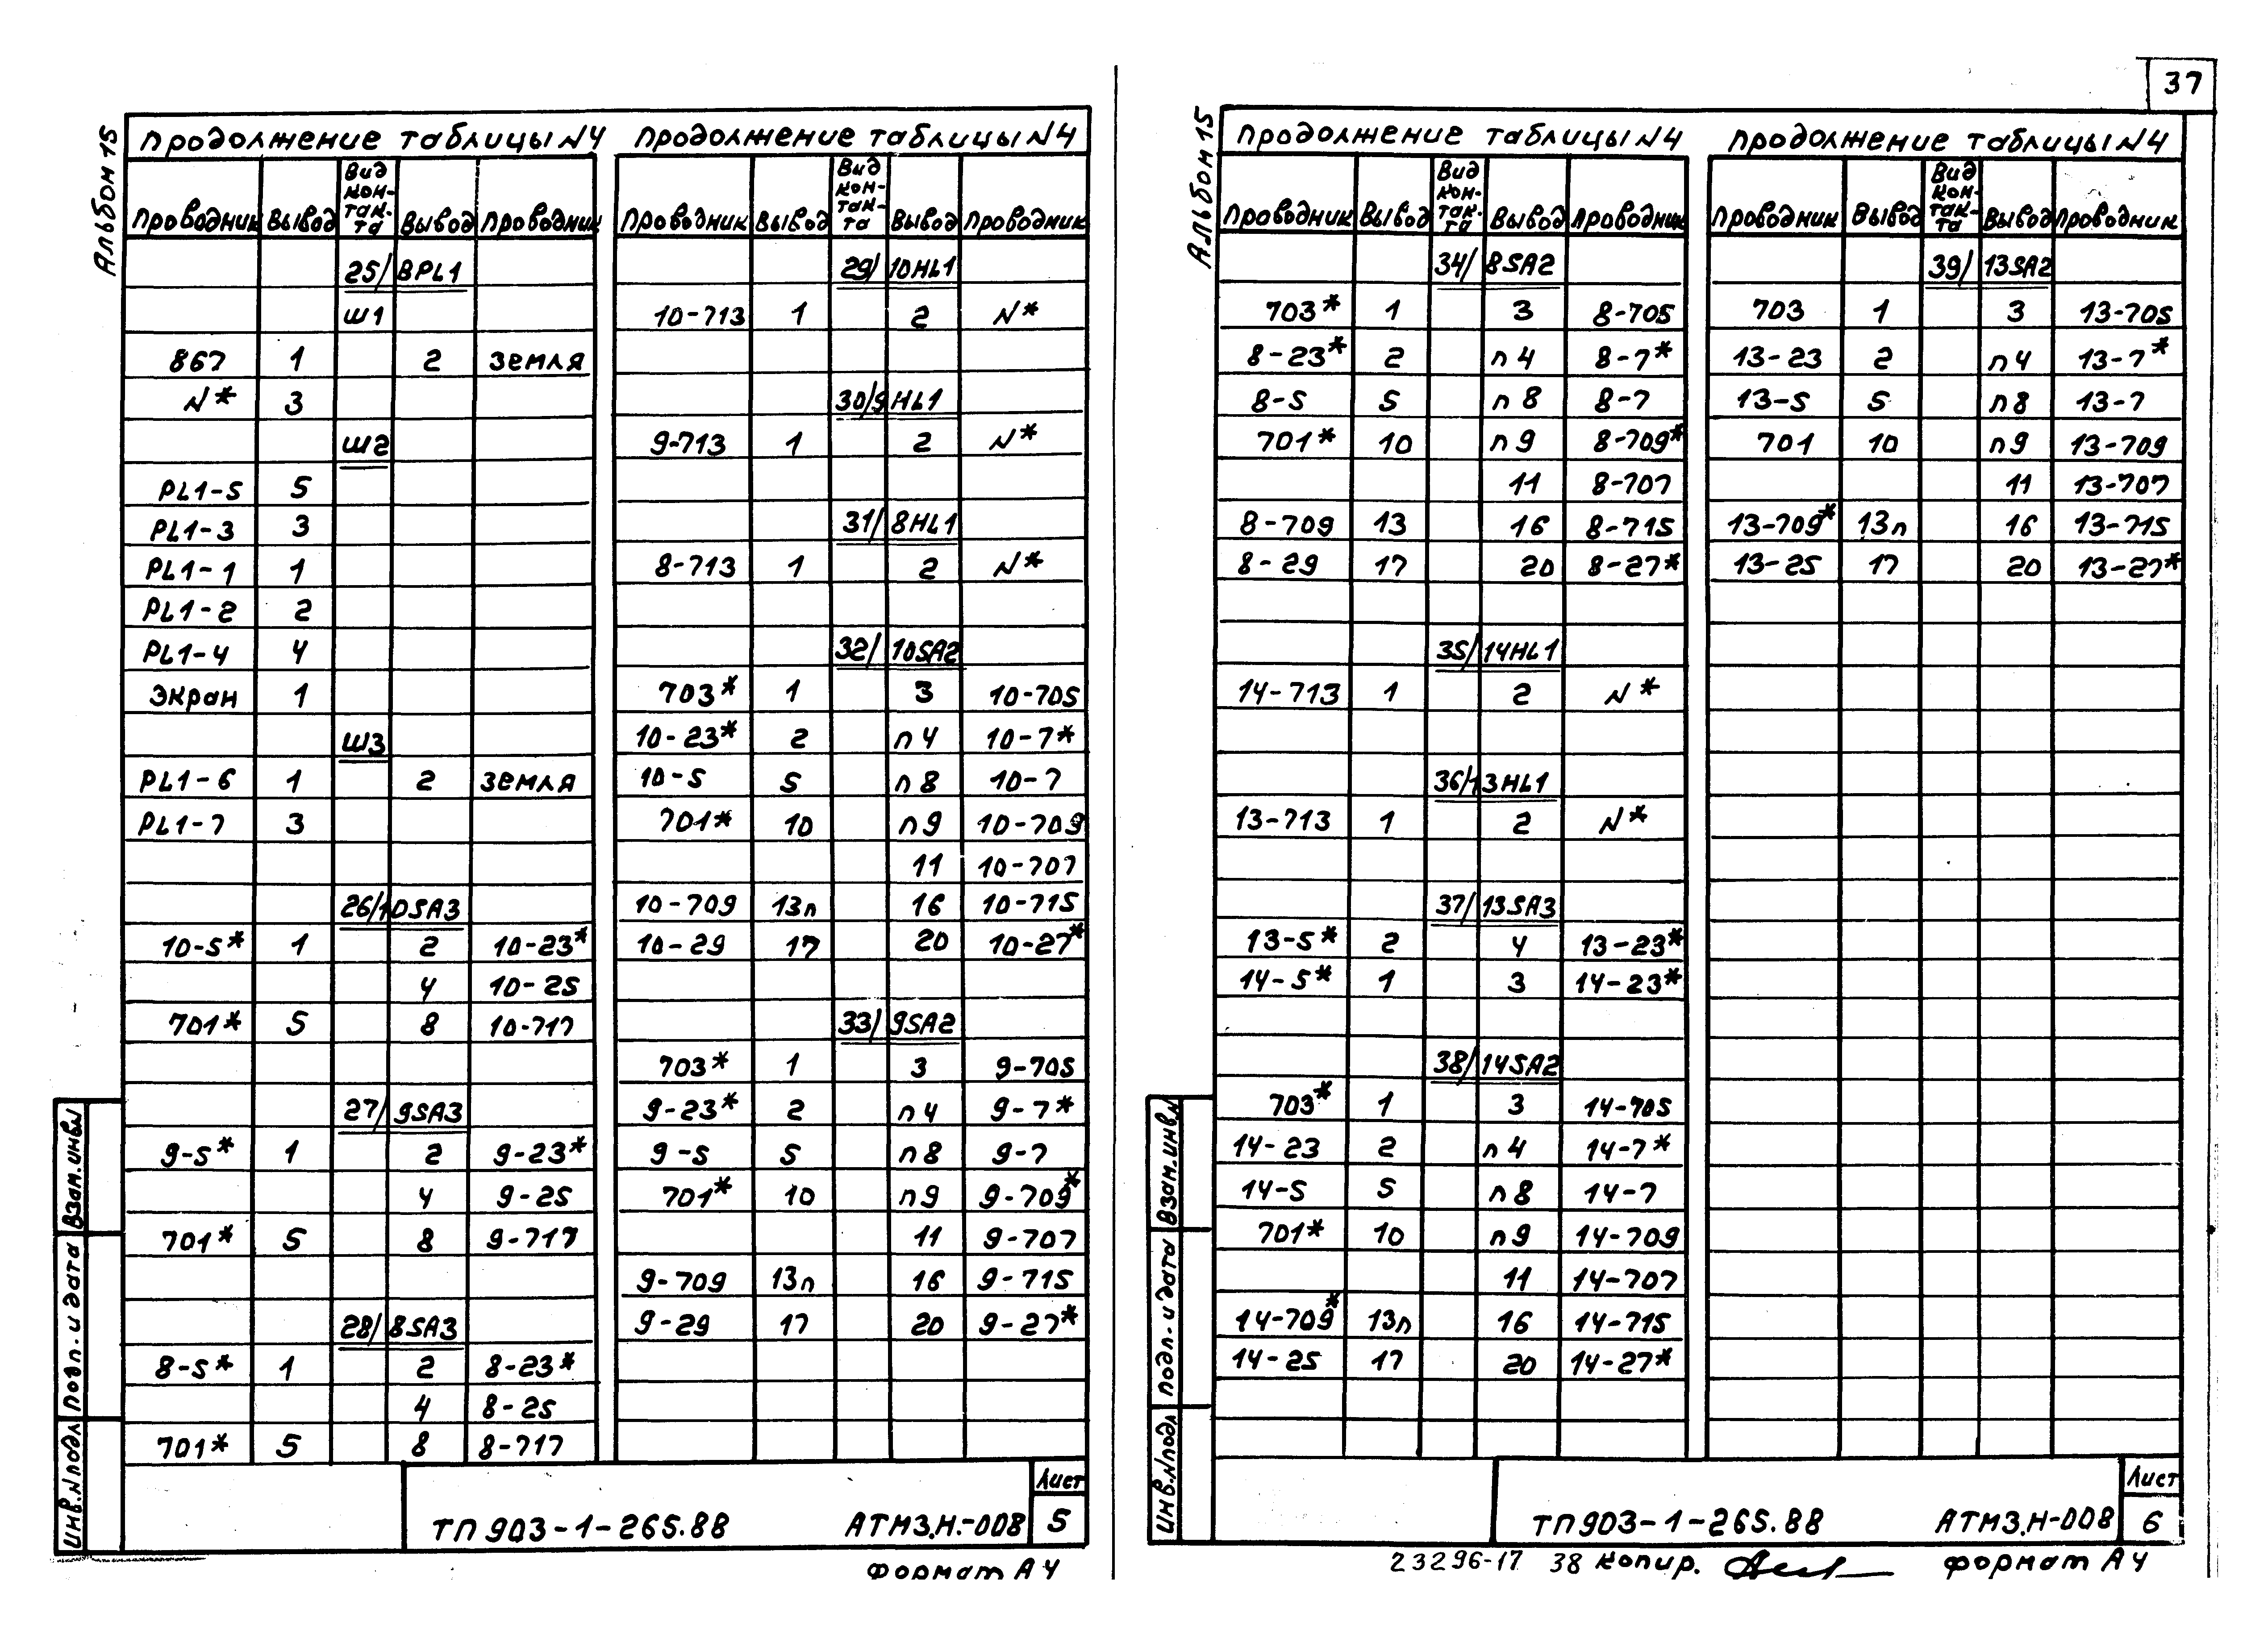 37
Альбом 15
Продолжение таблицы N4
Проводник Вывод Вид кон-так-та Вывод Проводник
25/ BPL1
Ш1
867 1 2 Земля
N* 3
Ш2
PL1-5 5
PL1-3 3
PL1-1 1
PL1-2 2
PL1-4 4
Экран 1
Ш3
PL1-6 1 2 Земля
PL1-7 3
26/10SA3
10-5* 1 2 10-23*
4 10-25
701* 5 8 10-717
27/ 9SA3
9-5* 1 2 9-23*
4 9-25
701* 5 8 9-717
28/ 8SA3
8-5* 1 2 8-23*
4 8-25
701* 5 8 8-717
Продолжение таблицы N4
Проводник Вывод Вид кон-так-та Вывод Проводник
29/ 10HL1
10-713 1 2 N*
30/9HL1
9-713 1 2 N*
31/ 8HL1
8-713 1 2 N*
32/ 10SA2
703* 1 3 10-705
10-23* 2 п4 10-7*
10-5 5 п8 10-7
701* 10 п9 10-709
11 10-707
10-709 13п 16 10-715
10-29 17 20 10-27*
33/ 9SA2
703* 1 3 9-705
9-23* 2 п4 9-7*
9-5 5 п8 9-7
701* 10 п9 9-709*
11 9-707
9-709 13п 16 9-715
9-29 17 20 9-27*
Взам.инв.N
Подп. и дата
Инв.N подл
ТП 903-1-265.88 АТМ3.Н.-008 Лист 5
Формат А4
Альбом 15
Продолжение таблицы N4
Проводник Вывод Вид кон-так-та Вывод Проводник
34/ 8SA2
703* 1 3 8-705
8-23* 2 п4 8-7*
8-5 5 п8 8-7
701* 10 п9 8-709*
11 8-707
8-709 13 16 8-715
8-29 17 20 8-27*
35/ 14HL1
14-713 1 2 N*
36/13HL1
13-713 1 2 N*
37/ 13SA3
13-5* 2 4 13-23*
14-5* 1 3 14-23*
38/ 14SA2
703* 1 3 14-705
14-23 2 п4 14-7*
14-5 5 п8 14-7
701* 10 п9 14-709
11 14-707
14-709* 13п 16 14-715
14-25 17 20 14-27*
Продолжение таблицы N4
Проводник Вывод Вид кон-так-та Вывод Проводник
39/ 13SA2
703 1 3 13-705
13-23 2 п4 13-7*
13-5 5 п8 13-7
701 10 п9 13-709
11 13-707
13-709* 13п 16 13-715
13-25 17 20 13-27*
Взам.инв.N
Подп. и дата
Инв.N подл
ТП903-1-265.88 АТМ3.Н-008 Лист 6
23296-17 38 Копир. Формат А4